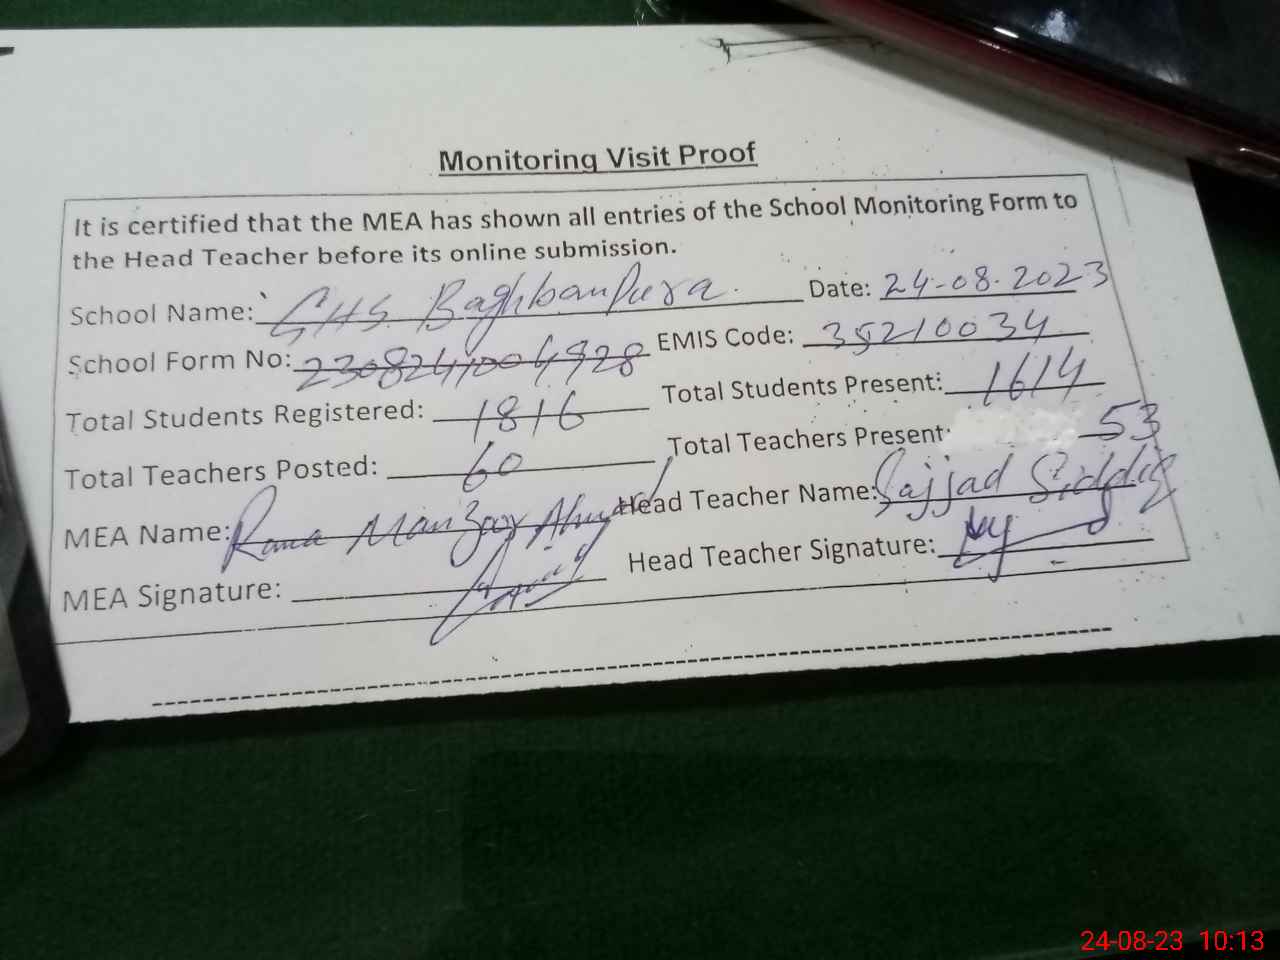 Monitoring Visit Proof
It is certified that the MEA has shown all entries of the School Monitoring Form to
the Head Teacher before its online submission.
School Name: GHS Baghbanpura. Date: 24-08-2023
School Form No: 2308241004928 EMIS Code: 35210034
Total Students Registered: 1816 Total Students Present: 1614
Total Teachers Posted: 60 Total Teachers Present: 53
MEA Name: Rana Manzoor Ahmad Head Teacher Name: Sajjad Siddiq
MEA Signature: Head Teacher Signature:
24-08-23 10:13